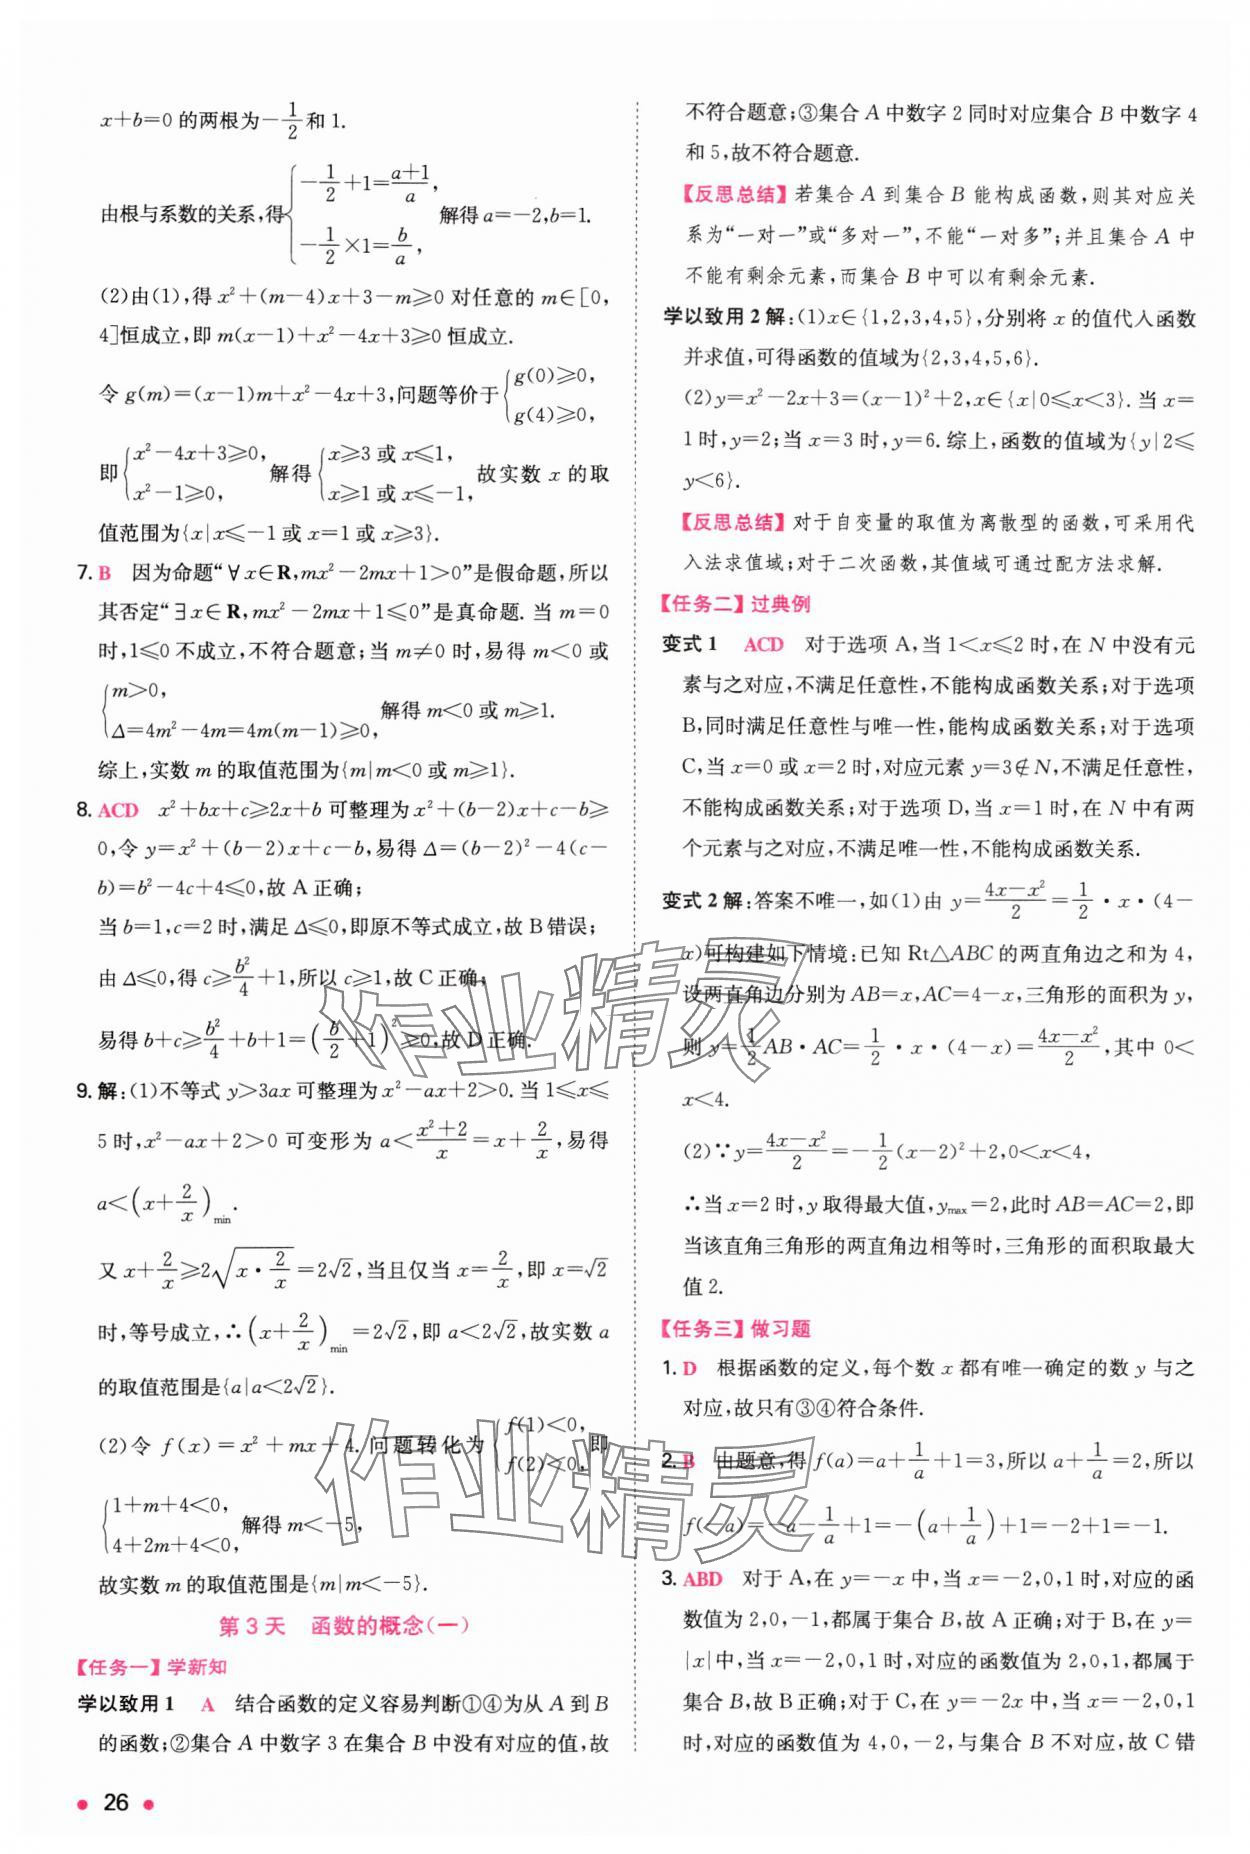 x+b=0 的两根为-1/2 和 1.
由根与系数的关系,得{-1/2+1=(a+1)/a, -1/2×1=b/a, 解得 a=-2,b=1.
(2)由(1),得 x²+(m-4)x+3-m≥0 对任意的 m∈[0,
4]恒成立,即 m(x-1)+x²-4x+3≥0 恒成立.
令 g(m)=(x-1)m+x²-4x+3,问题等价于{g(0)≥0, g(4)≥0,
即{x²-4x+3≥0, x²-1≥0, 解得{x≥3 或 x≤1, x≥1 或 x≤-1, 故实数 x 的取
值范围为{x|x≤-1 或 x=1 或 x≥3}.
7. B 因为命题“∀x∈R,mx²-2mx+1>0”是假命题,所以
其否定“∃x∈R,mx²-2mx+1≤0”是真命题. 当 m=0
时,1≤0 不成立,不符合题意;当 m≠0 时,易得 m<0 或
{m>0, Δ=4m²-4m=4m(m-1)≥0, 解得 m<0 或 m≥1.
综上,实数 m 的取值范围为{m|m<0 或 m≥1}.
8. ACD x²+bx+c≥2x+b 可整理为 x²+(b-2)x+c-b≥
0,令 y=x²+(b-2)x+c-b,易得 Δ=(b-2)²-4(c-
b)=b²-4c+4≤0,故 A 正确;
当 b=1,c=2 时,满足 Δ≤0,即原不等式成立,故 B 错误;
由 Δ≤0,得 c≥b²/4+1,所以 c≥1,故 C 正确;
易得 b+c≥b²/4+b+1=(b/2+1)²≥0,故 D 正确.
9. 解:(1)不等式 y>3ax 可整理为 x²-ax+2>0. 当 1≤x≤
5 时,x²-ax+2>0 可变形为 a<(x²+2)/x=x+2/x,易得
a<(x+2/x)min.
又 x+2/x≥2√(x·2/x)=2√2,当且仅当 x=2/x,即 x=√2
时,等号成立,∴(x+2/x)min=2√2,即 a<2√2,故实数 a
的取值范围是{a|a<2√2}.
(2)令 f(x)=x²+mx+4. 问题转化为{f(1)<0, f(2)<0, 即
{1+m+4<0, 4+2m+4<0, 解得 m<-5,
故实数 m 的取值范围是{m|m<-5}.
第 3 天 函数的概念(一)
【任务一】学新知
学以致用 1 A 结合函数的定义容易判断①④为从 A 到 B
的函数;②集合 A 中数字 3 在集合 B 中没有对应的值,故
26
不符合题意;③集合 A 中数字 2 同时对应集合 B 中数字 4
和 5,故不符合题意.
【反思总结】若集合 A 到集合 B 能构成函数,则其对应关
系为“一对一”或“多对一”,不能“一对多”;并且集合 A 中
不能有剩余元素,而集合 B 中可以有剩余元素.
学以致用 2 解:(1)x∈{1,2,3,4,5},分别将 x 的值代入函数
并求值,可得函数的值域为{2,3,4,5,6}.
(2)y=x²-2x+3=(x-1)²+2,x∈{x|0≤x<3}. 当 x=
1 时,y=2;当 x=3 时,y=6. 综上,函数的值域为{y|2≤
y<6}.
【反思总结】对于自变量的取值为离散型的函数,可采用代
入法求值域;对于二次函数,其值域可通过配方法求解.
【任务二】过典例
变式 1 ACD 对于选项 A,当 1<x≤2 时,在 N 中没有元
素与之对应,不满足任意性,不能构成函数关系;对于选项
B,同时满足任意性与唯一性,能构成函数关系;对于选项
C,当 x=0 或 x=2 时,对应元素 y=3∉N,不满足任意性,
不能构成函数关系;对于选项 D,当 x=1 时,在 N 中有两
个元素与之对应,不满足唯一性,不能构成函数关系.
变式 2 解:答案不唯一,如(1)由 y=(4x-x²)/2=1/2·x·(4-
x)可构建如下情境:已知 Rt△ABC 的两直角边之和为 4,
设两直角边分别为 AB=x,AC=4-x,三角形的面积为 y,
则 y=1/2AB·AC=1/2·x·(4-x)=(4x-x²)/2,其中 0<
x<4.
(2)∵y=(4x-x²)/2=-1/2(x-2)²+2,0<x<4,
∴当 x=2 时,y 取得最大值,ymax=2,此时 AB=AC=2,即
当该直角三角形的两直角边相等时,三角形的面积取最大
值 2.
【任务三】做习题
1. D 根据函数的定义,每个数 x 都有唯一确定的数 y 与之
对应,故只有③④符合条件.
2. B 由题意,得 f(a)=a+1/a+1=3,所以 a+1/a=2,所以
f(-a)=-a-1/a+1=-(a+1/a)+1=-2+1=-1.
3. ABD 对于 A,在 y=-x 中,当 x=-2,0,1 时,对应的函
数值为 2,0,-1,都属于集合 B,故 A 正确;对于 B,在 y=
|x|中,当 x=-2,0,1 时,对应的函数值为 2,0,1,都属于
集合 B,故 B 正确;对于 C,在 y=-2x 中,当 x=-2,0,1
时,对应的函数值为 4,0,-2,与集合 B 不对应,故 C 错
作业精灵
作业精灵